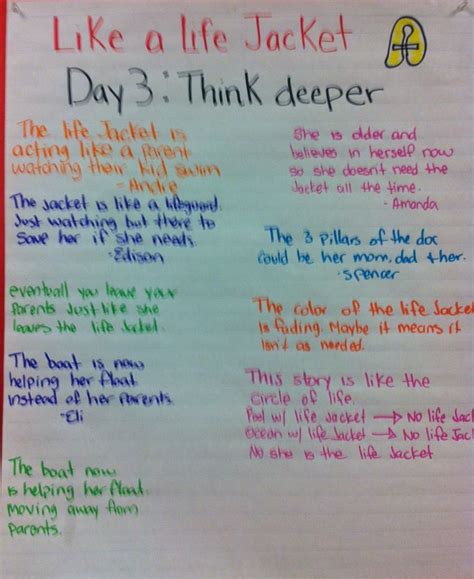 Like a life Jacket
Day 3: Think deeper
The life Jacket is
acting like a parent
watching their kid swim
- Andie
The Jacket is like a lifeguard.
Just watching but there to
save her if she needs.
-Edison
eventuall you leave your
parents Just like she
leaves the life Jacket.
The boat is now
helping her float
instead of her parents.
-Eli
The boat now
is helping her float.
moving away from
parents.
She is older and
believes in herself now
so she doesn't need the
Jacket all the time.
- Amanda
The 3 pillars of the doc
could be her mom, dad & her.
-spencer
The color of the life Jacket
is fading. Maybe it means it
isn't as needed.
This story is like the
circle of life.
Pool w/ life Jacket → No life Jac
Ocean w/ life Jacket → No life Jack
No she is the life Jacket